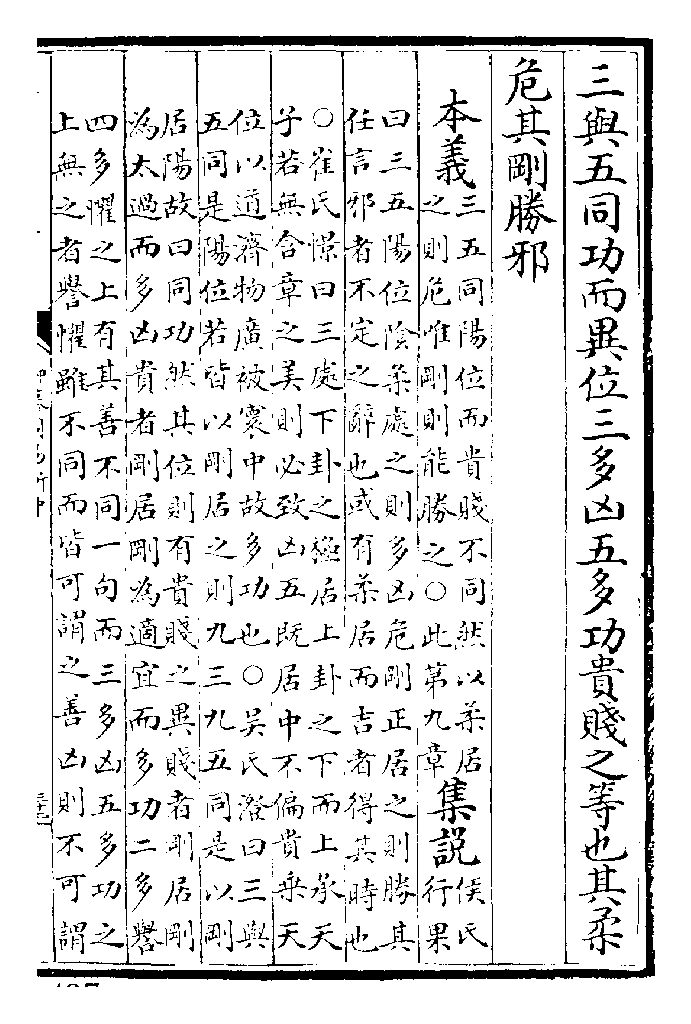 三與五同功而異位三多凶五多功貴賤之等也其柔
危其剛勝邪
本義
三五同陽位而貴賤不同然以柔居
之則危唯剛則能勝之○此第九章
集說
侯氏
行果
曰三五陽位陰柔處之則多凶危剛正居之則勝其
任言邪者不定之辭也或有柔居而吉者得其時也
○崔氏憬曰三處下卦之極居上卦之下而上承天
子若無含章之美則必致凶五既居中不偏貴乘天
位以道濟物廣被寰中故多功也○吳氏澄曰三與
五同是陽位若皆以剛居之則九三九五同是以剛
居陽故曰同功然其位則有貴賤之異賤者剛居剛
為太過而多凶貴者剛居剛為適宜而多功二多譽
四多懼之上有其善不同一句而三多凶五多功之
上無之者譽懼雖不同而皆可謂之善凶則不可謂